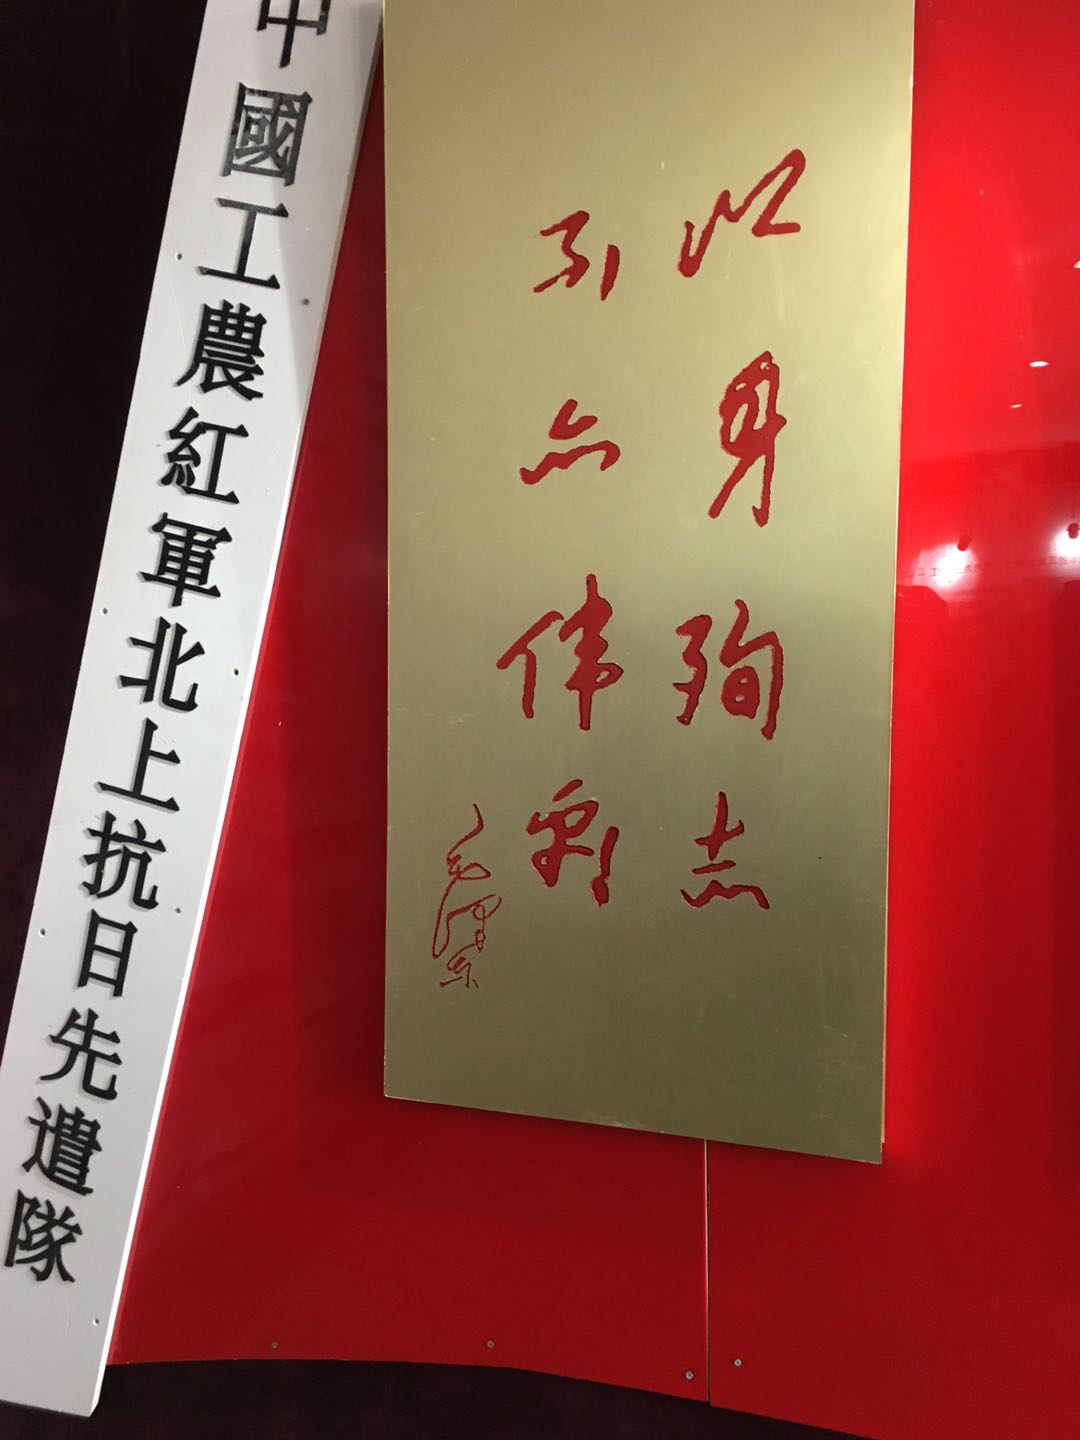 以身殉志
不亦伟乎！
毛泽东
中國工農紅軍北上抗日先遣隊